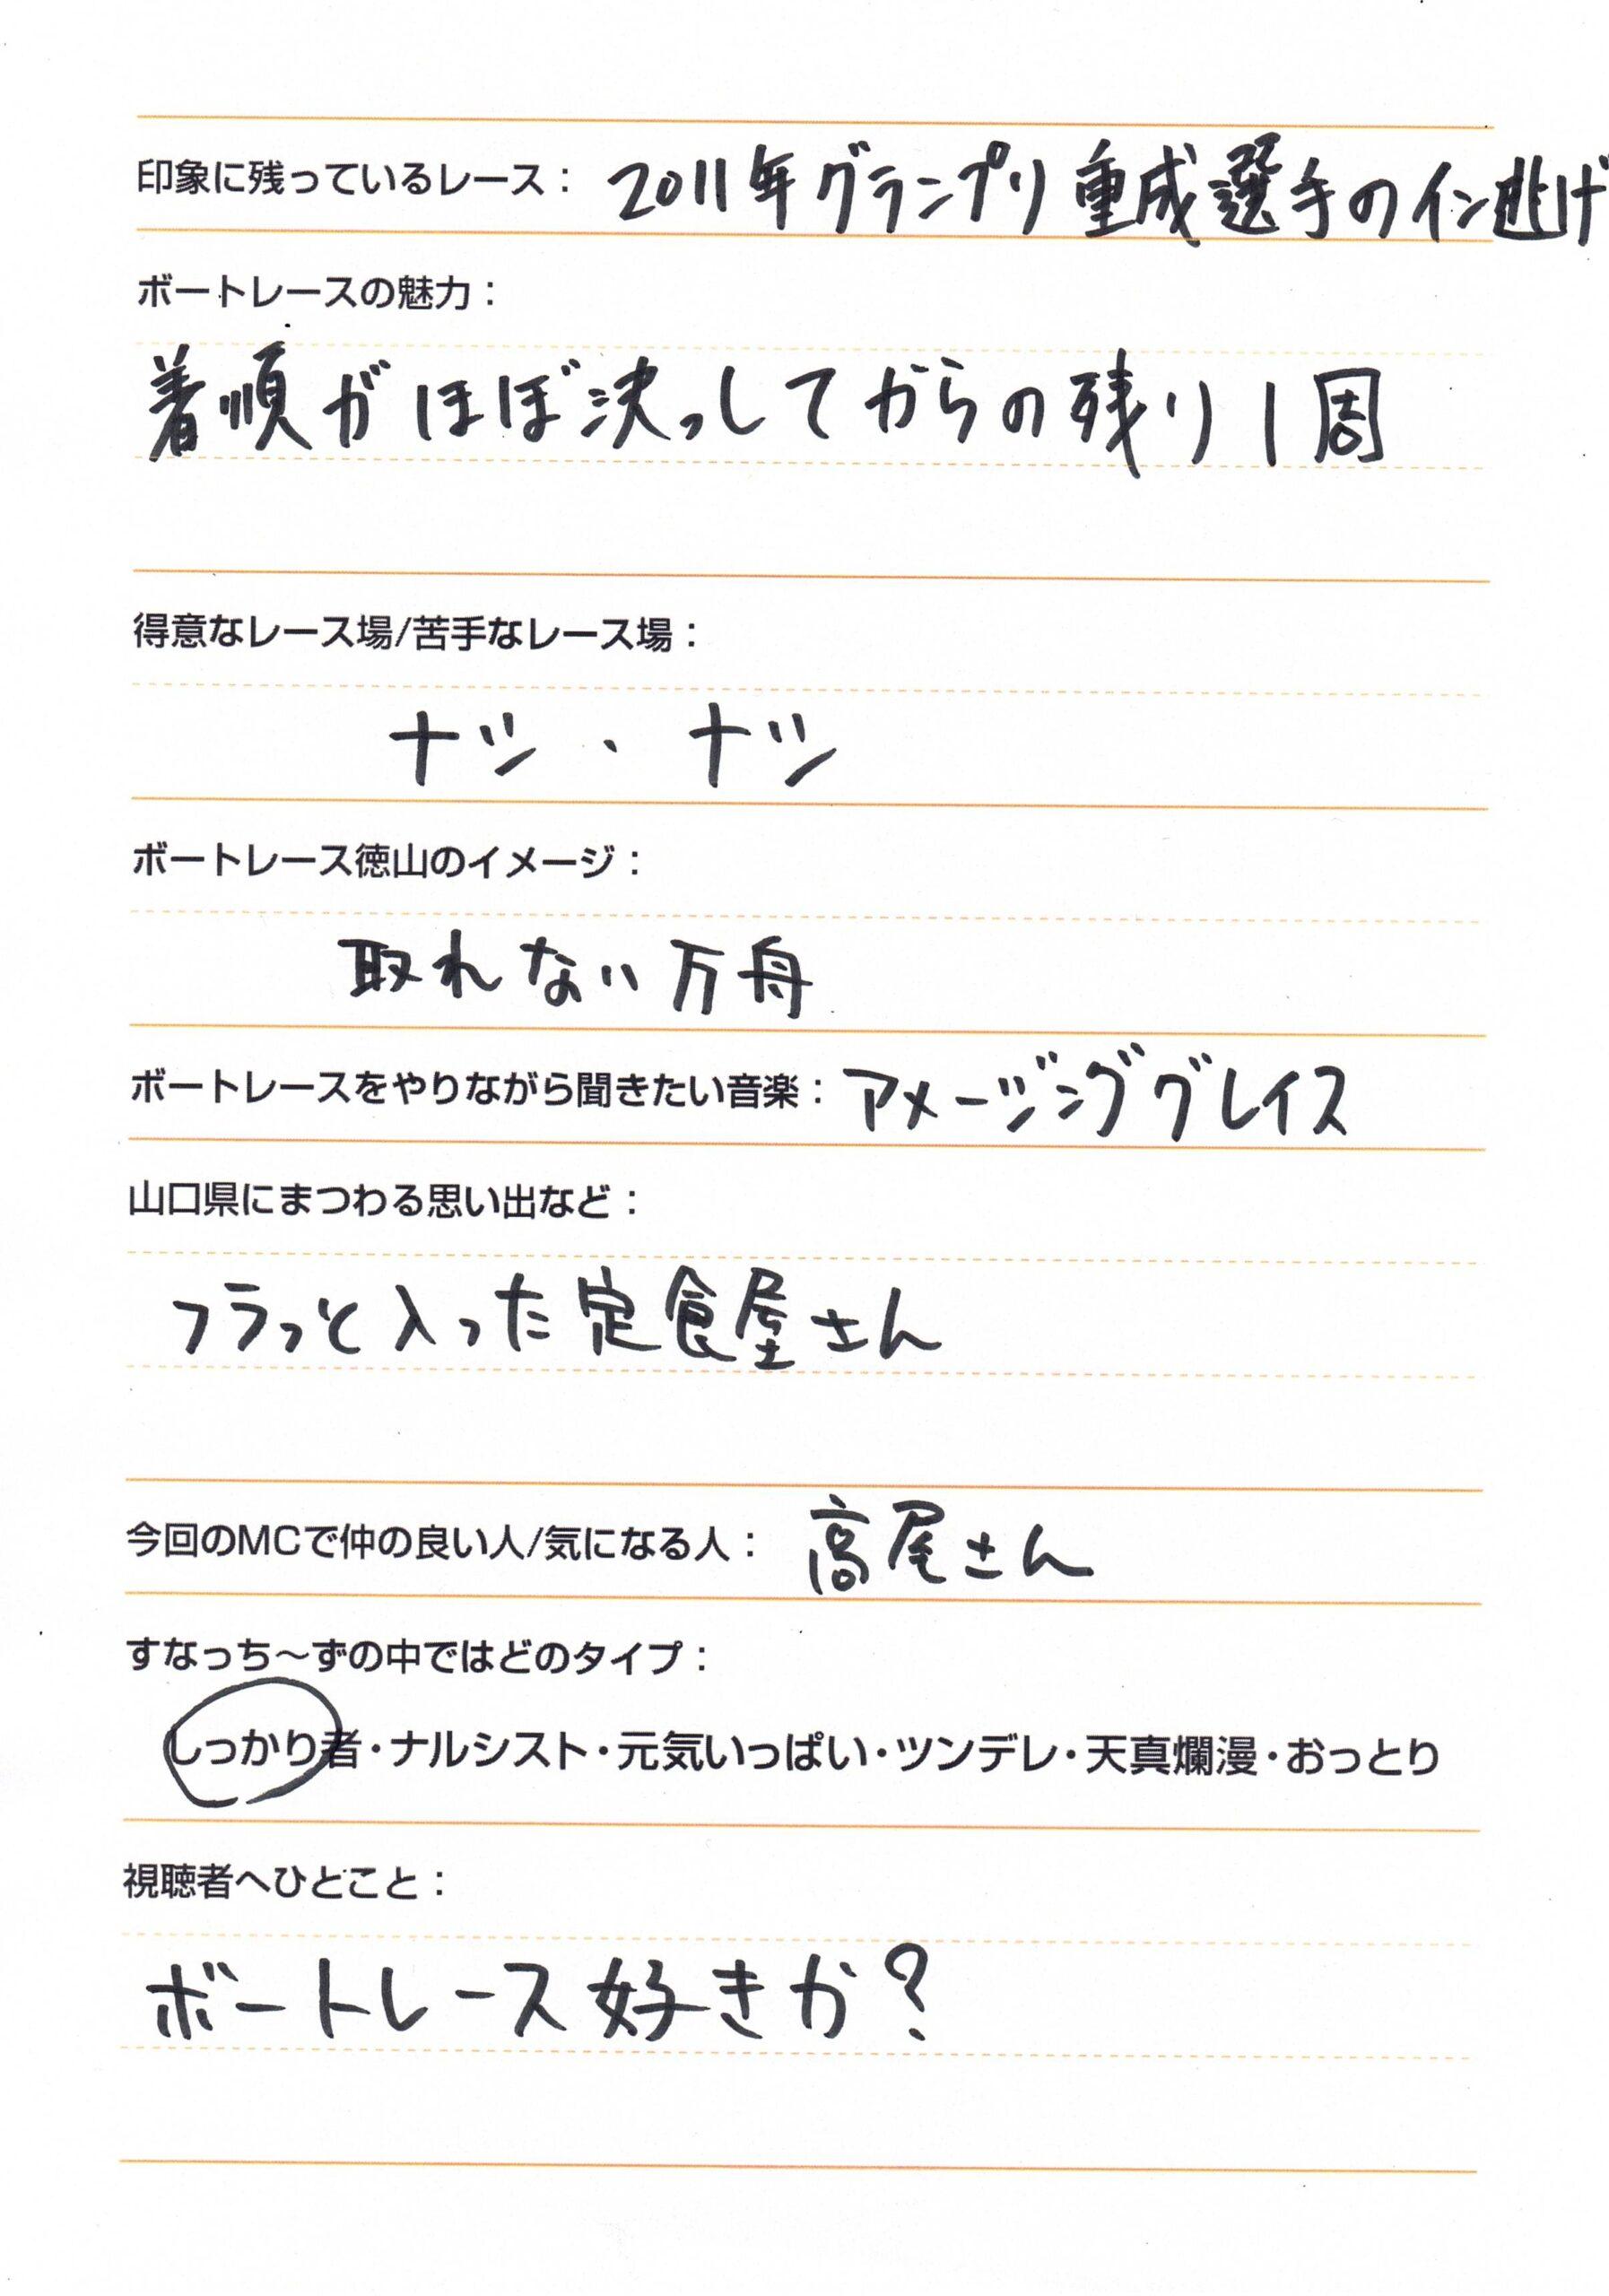 印象に残っているレース： 2011年グランプリ重成選手のイン逃げ
ボートレースの魅力：
着順がほぼ決っしてからの残り1周
得意なレース場/苦手なレース場：
ナツ、ナツ
ボートレース徳山のイメージ：
取れない万舟
ボートレースをやりながら聞きたい音楽： アメージンググレイス
山口県にまつわる思い出など：
フラっと入った定食屋さん
今回のMCで仲の良い人/気になる人： 高尾さん
すなっち〜ずの中ではどのタイプ：
しっかり者・ナルシスト・元気いっぱい・ツンデレ・天真爛漫・おっとり
視聴者へひとこと：
ボートレース好きか？